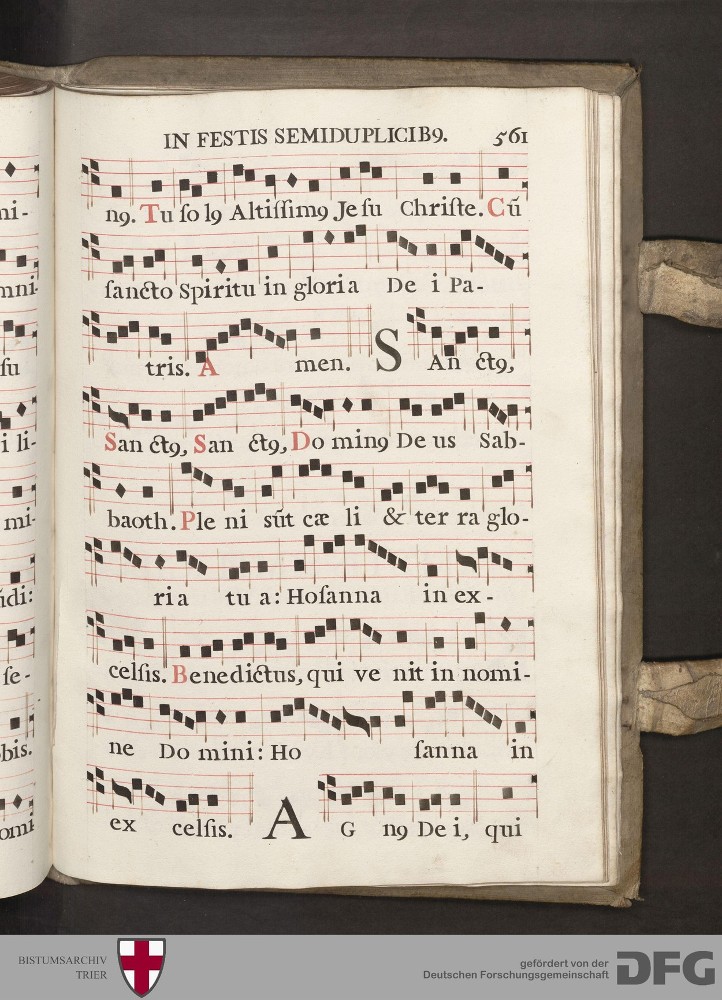 IN FESTIS SEMIDUPLICIB9. 561
n9. Tu ſo l9 Altiſſim9 Je ſu Chriſte. Cũ
ſancto Spiritu in gloria De i Pa-
tris. A men. S An ct9,
San ct9, San ct9, Do min9 De us Sab-
baoth. Ple ni sũt cæ li & ter ra glo-
ria tu a: Hoſanna in ex-
celſis. Benedictus, qui ve nit in nomi-
ne Do mini: Ho ſanna in
ex celſis. A G n9 De i, qui
ni-
mni-
ſu
i li-
mi-
ũdi:
ſe-
obis.
omi
BISTUMSARCHIV
TRIER
gefördert von der
Deutschen Forschungsgemeinschaft
DFG